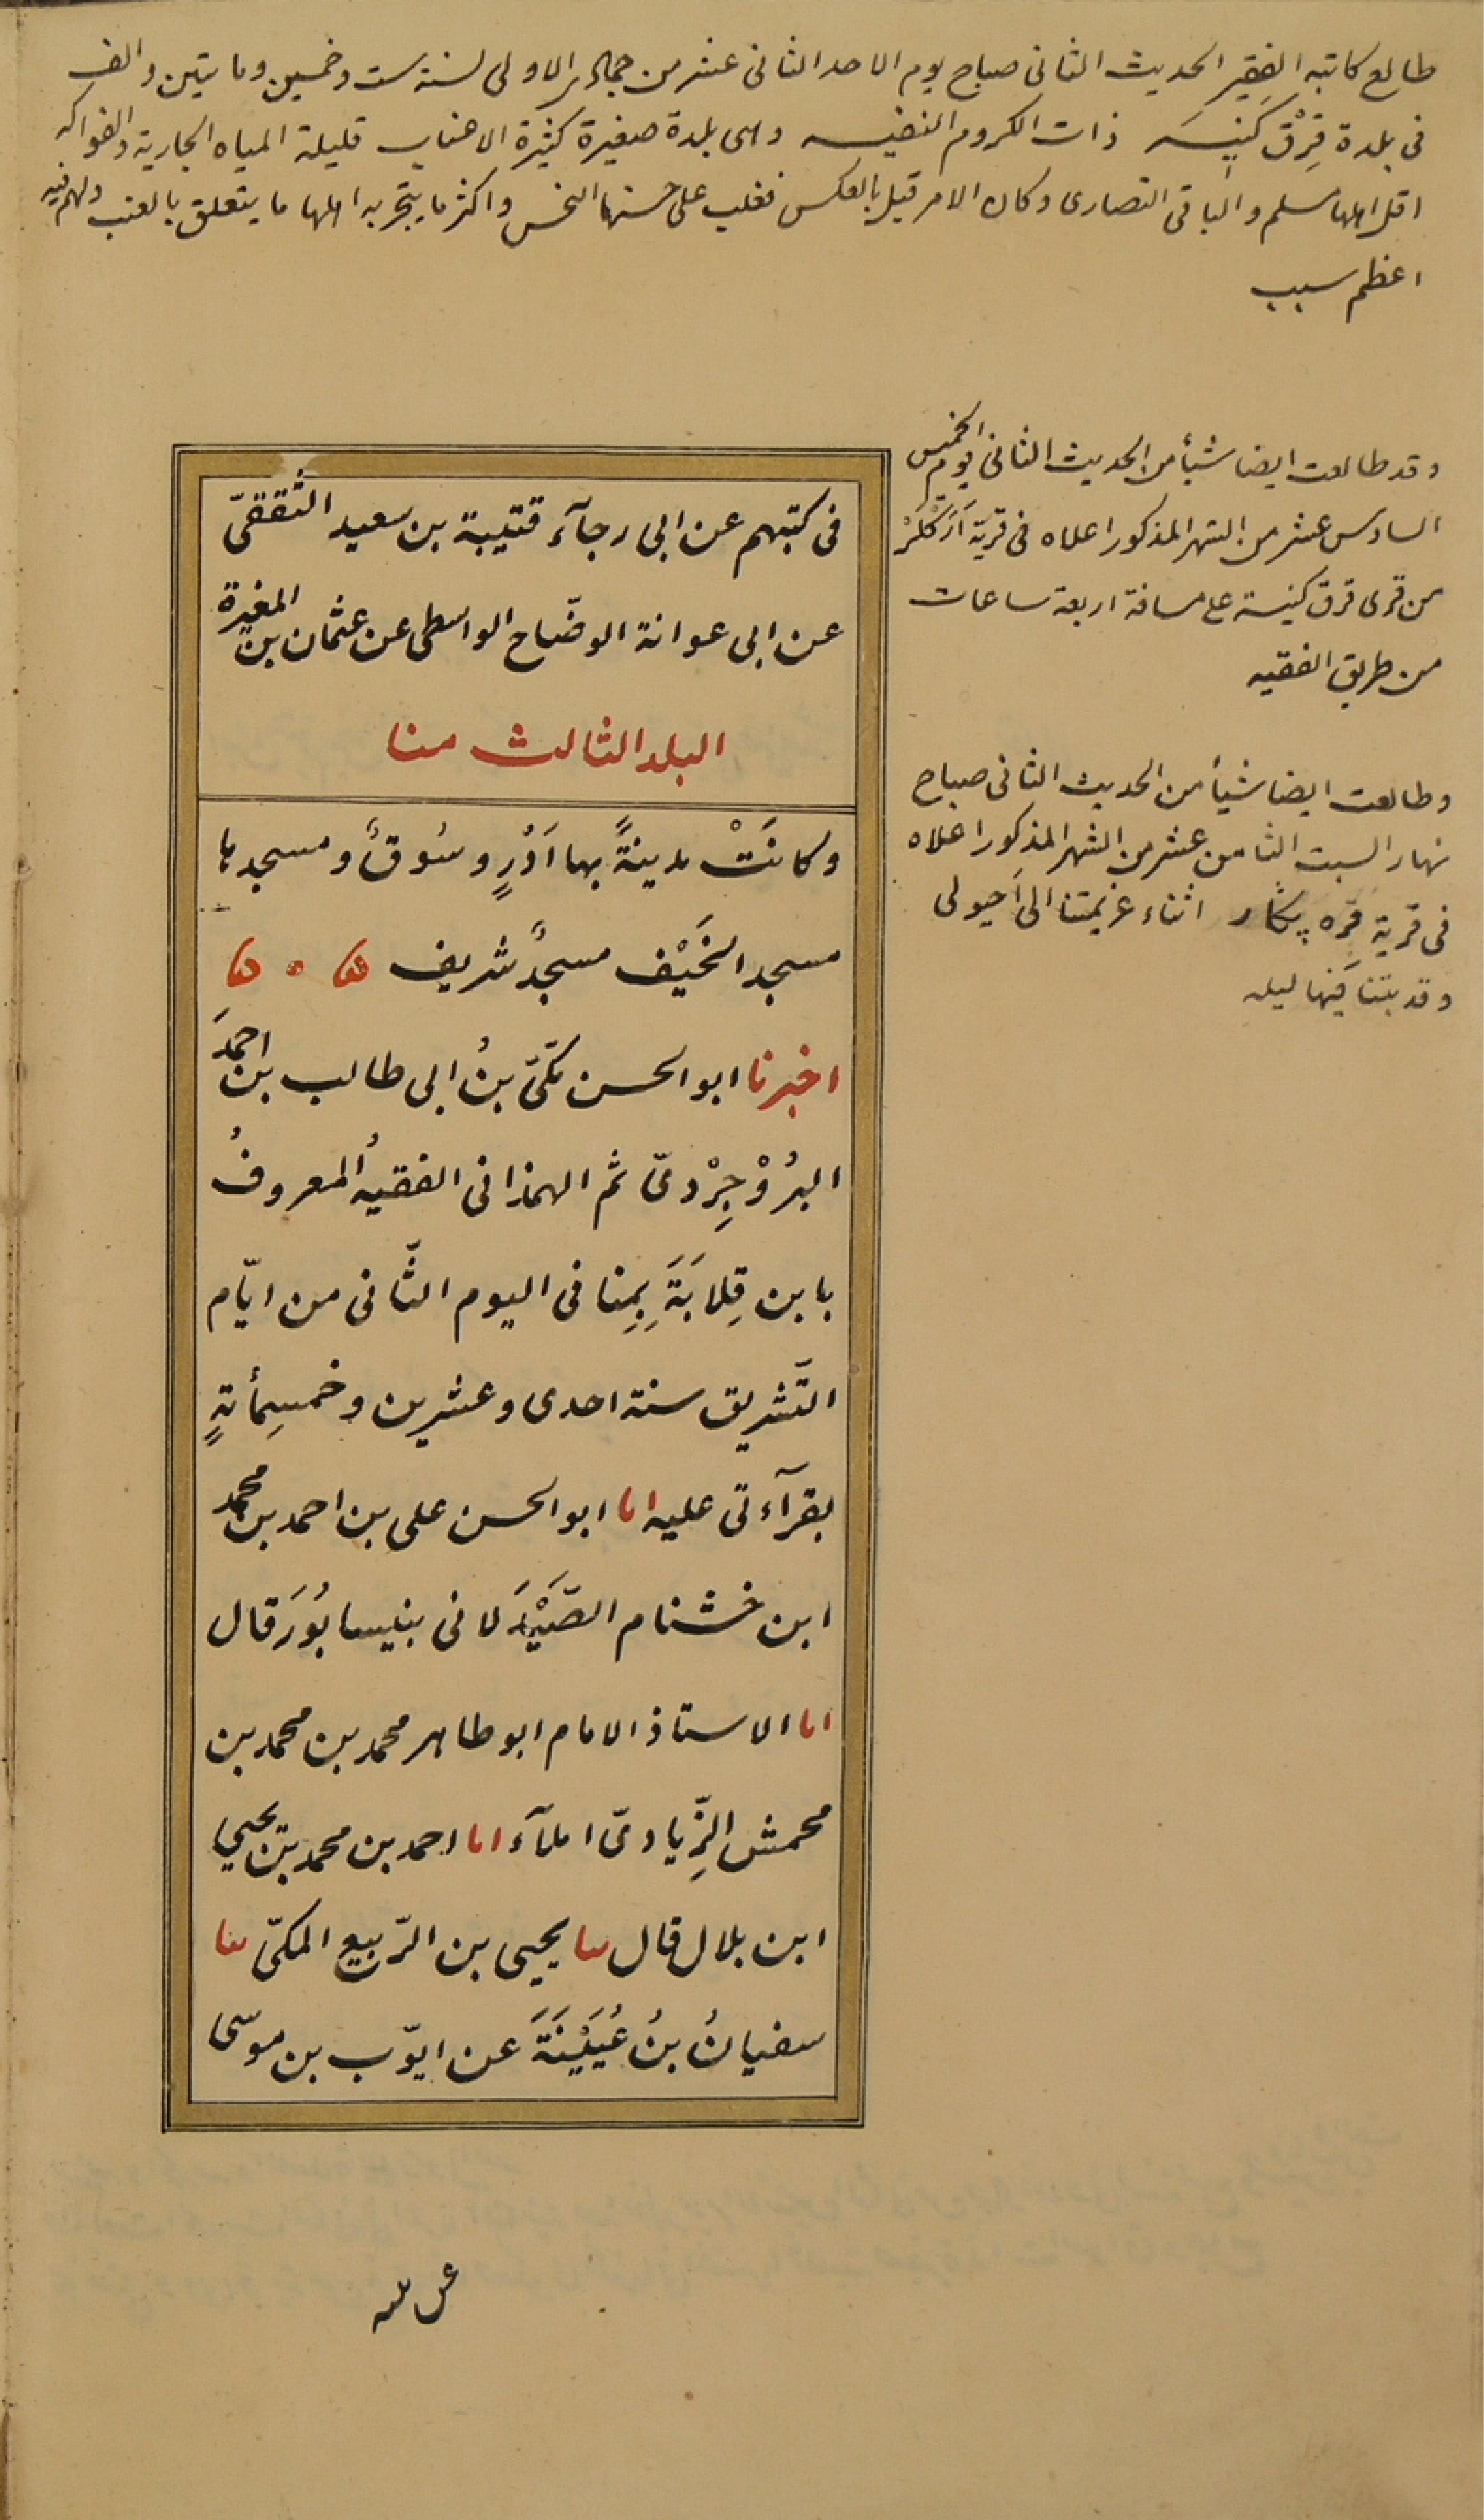 طالع كاتبه الفقير الحديث الثانى صباح يوم الاحد الثانى عشر من جمادى الاولى لسنة ست وخمسين ومايتين والف
فى بلدة قِرْق كَنِيسَه ذات الكروم النفيسه وهى بلدة صغيرة كثيرة الاعناب قليلة المياه الجارية والفواكه
اقل اهلها مسلم والباقى النصارى وكان الامر قبل بالعكس فغلب على حسنها النحس واكثر ما يتجر به اهلها ما يتعلق بالعنب ولهم فيه
اعظم سبب
وقد طالعت ايضا شيأ من الحديث الثانى يوم الخميس
السادس عشر من الشهر المذكور اعلاه فى قرية
من قرى قرق كنيسة على مسافة اربعة ساعات
من طريق الفقيه
وطالعت ايضا شيأ من الحديث الثانى صباح
نهار السبت الثامن عشر من الشهر المذكور اعلاه
فى قرية قره پكار اثناء عزيمتنا الى احيولى
وقد بتنا فيها ليله
فى كتبهم عن ابى رجآء قتيبة بن سعيد الثقفىّ
عن ابى عوانة الوضّاح الواسطى عن عثمان بن المغيرة
البلد الثالث منا
وكانَتْ مدينةً بها آدُرٍ وسُوقٌ ومسجدها
مسجد الخَيْف مسجدٌ شريف ه ۰ ه
اخبرنا ابو الحسن مكّىّ بنُ ابى طالب بن احمدَ
البرُوْجِرْدىّ ثم الهمذانى الفقيهُ المعروفُ
بابن قِلابَةَ بِمِنا فى اليوم الثّانى من ايّام
التّشريق سنة احدى وعشرين وخمسِمأئةٍ
بقرآءتى عليه انا ابو الحسن على بن احمد بن محمد
ابن خشنام الصَّيْدَلانى بنيسابُورَ قال
انا الاستاذ الامام ابو طاهر محمد بن محمد بن
محمش الزِّيادىّ املآء انا احمد بن محمد بن يحيى
ابن بلال قال ثنا يحيى بن الرّبيع المكىّ ثنا
سفيانُ بنُ عُيَيْنَةَ عن ايّوب بن موسى